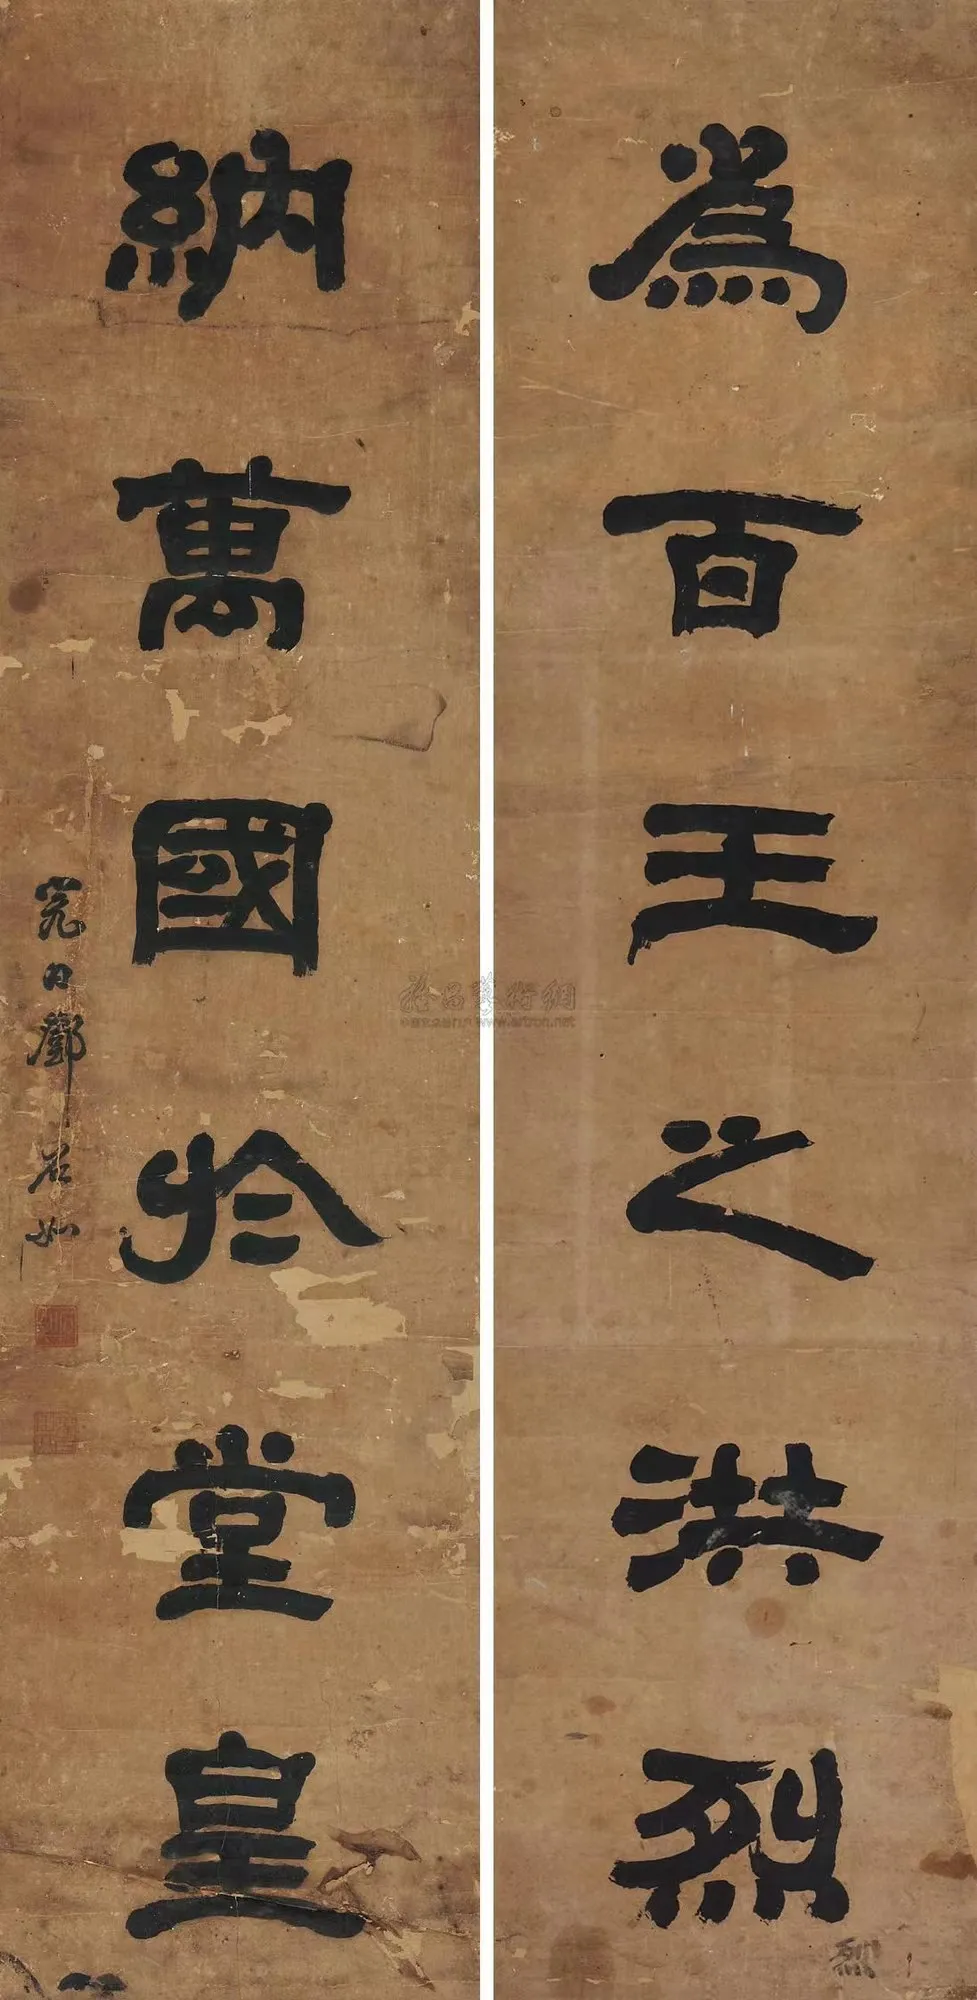 為百王之洪烈
納萬國於堂皇
完白鄧石如
烈
www.artron.net